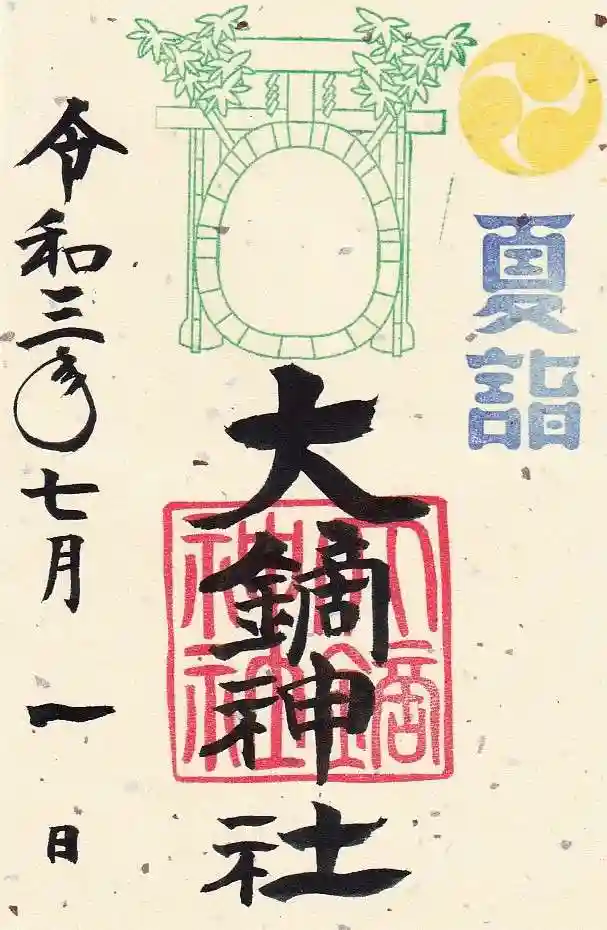 夏詣
大鏑神社
大鏑神社
令和三年七月一日